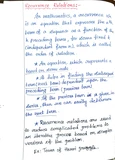 Recurrence Relations:-
In mathematics, a recurrence is
an equation that expresses the nth
term of a sequence as a function of
preceding terms, for some fixed
(independent from n), which is called
the order of relation.
An equation, which represents a
based on some rule
It helps in finding the
term (next term) dependent upon the
preceding term (previous term)
If the previous term in a given
series, then one can easily determine
the next term.
Recurrence relations are used
to reduce complicated problems to
an iterative process based on simpler
versions of the problem
Ex: Tower of Hanoi